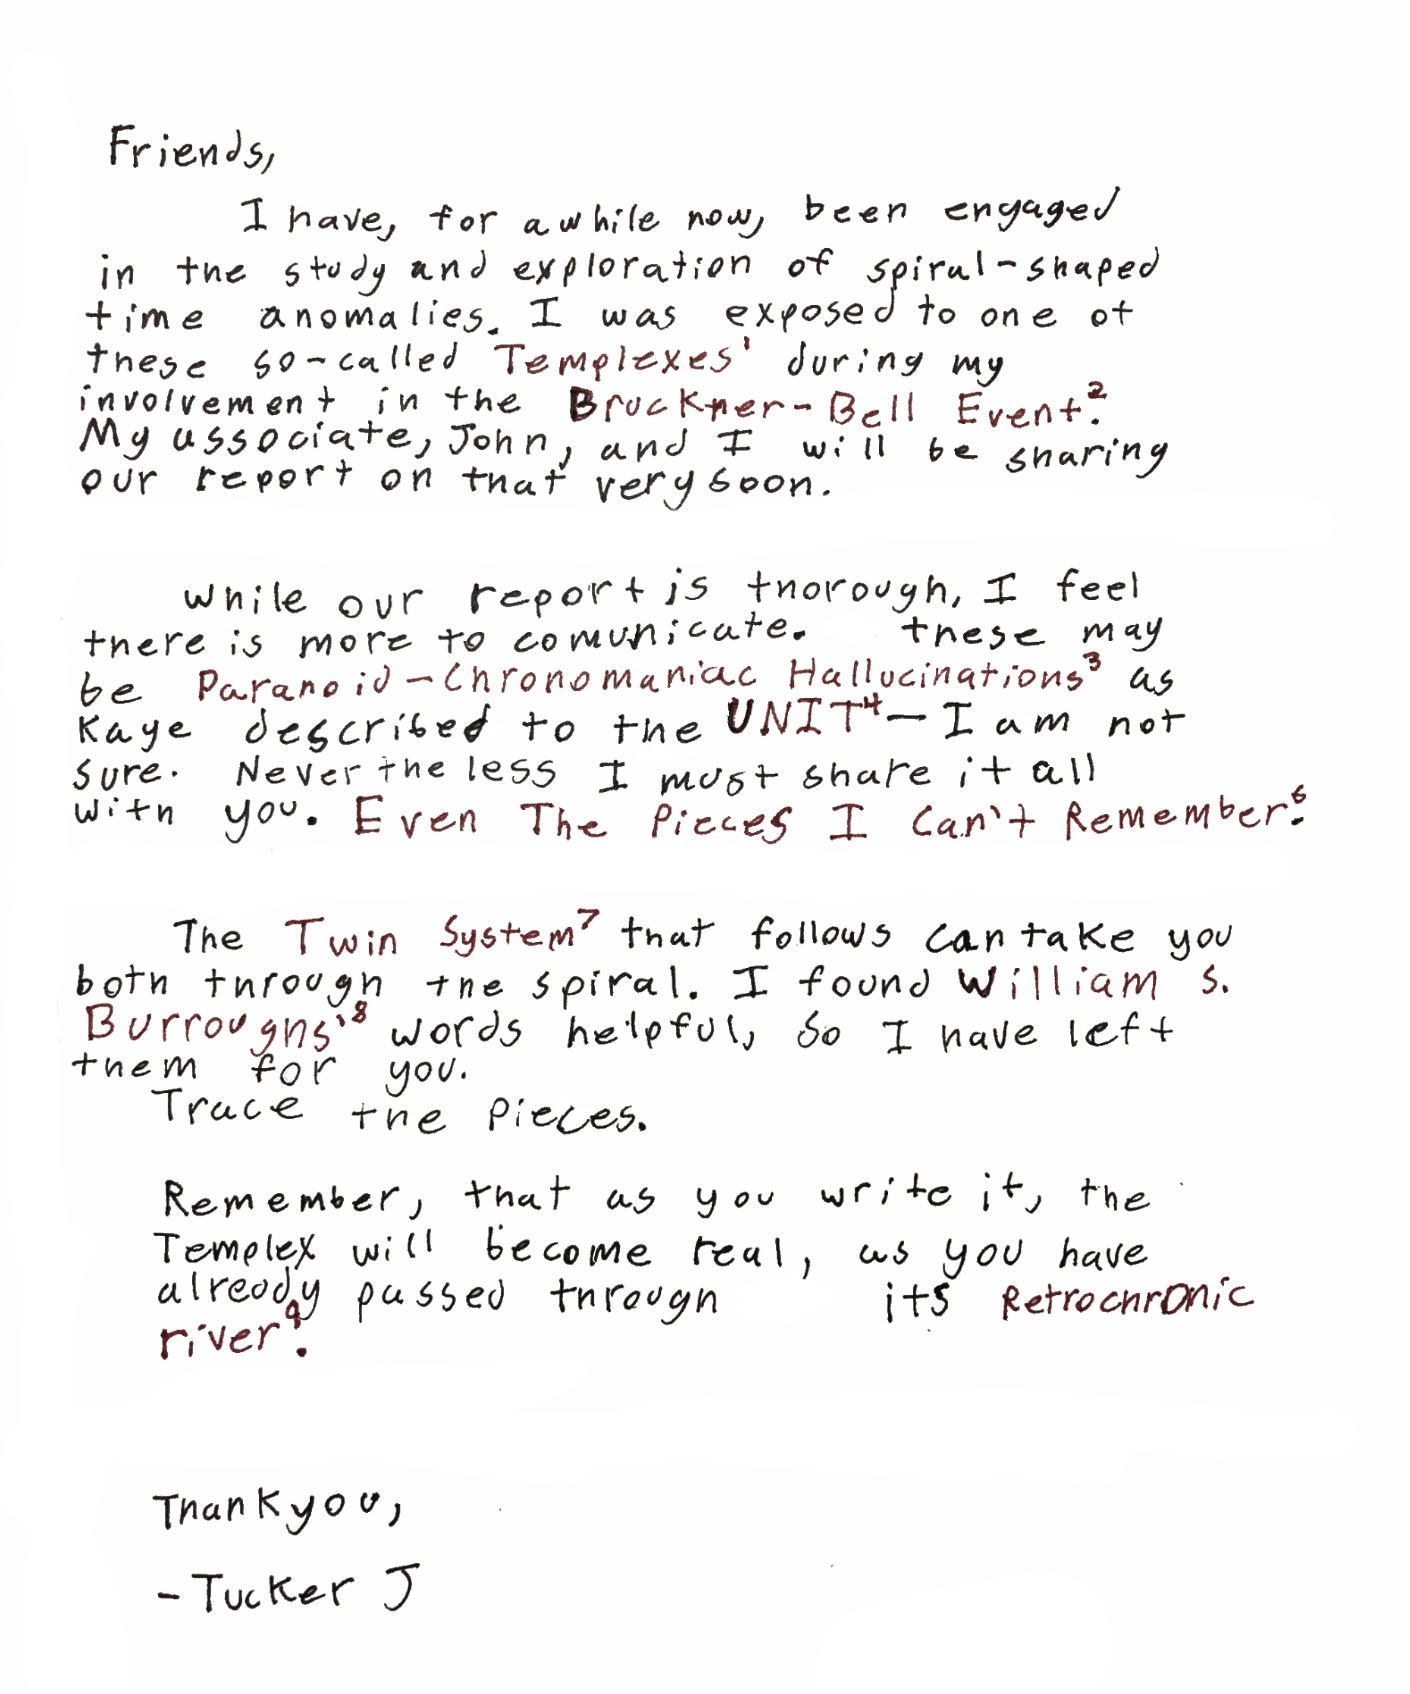 Friends,
I have, for awhile now, been engaged
in the study and exploration of spiral-shaped
time anomalies. I was exposed to one of
these so-called Templexes¹ during my
involvement in the Bruckner-Bell Event².
My associate, John, and I will be sharing
our report on that very soon.
While our report is thorough, I feel
there is more to comunicate. these may
be Paranoid-Chronomaniac Hallucinations³ as
Kaye described to the UNIT⁴—I am not
sure. Never the less I must share it all
with you. Even The Pieces I Can't Remember⁶.
The Twin System⁷ that follows can take you
both through the spiral. I found William S.
Burroughs'⁸ words helpful, so I have left
them for you.
Trace the Pieces.
Remember, that as you write it, the
Templex will become real, as you have
already passed through its Retrochronic
river⁹.
Thank you,
-Tucker J